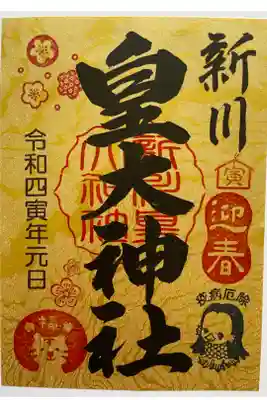 新川
皇大神社
新川皇大神社
寅
迎春
疫病厄除
令和四寅年元日
福